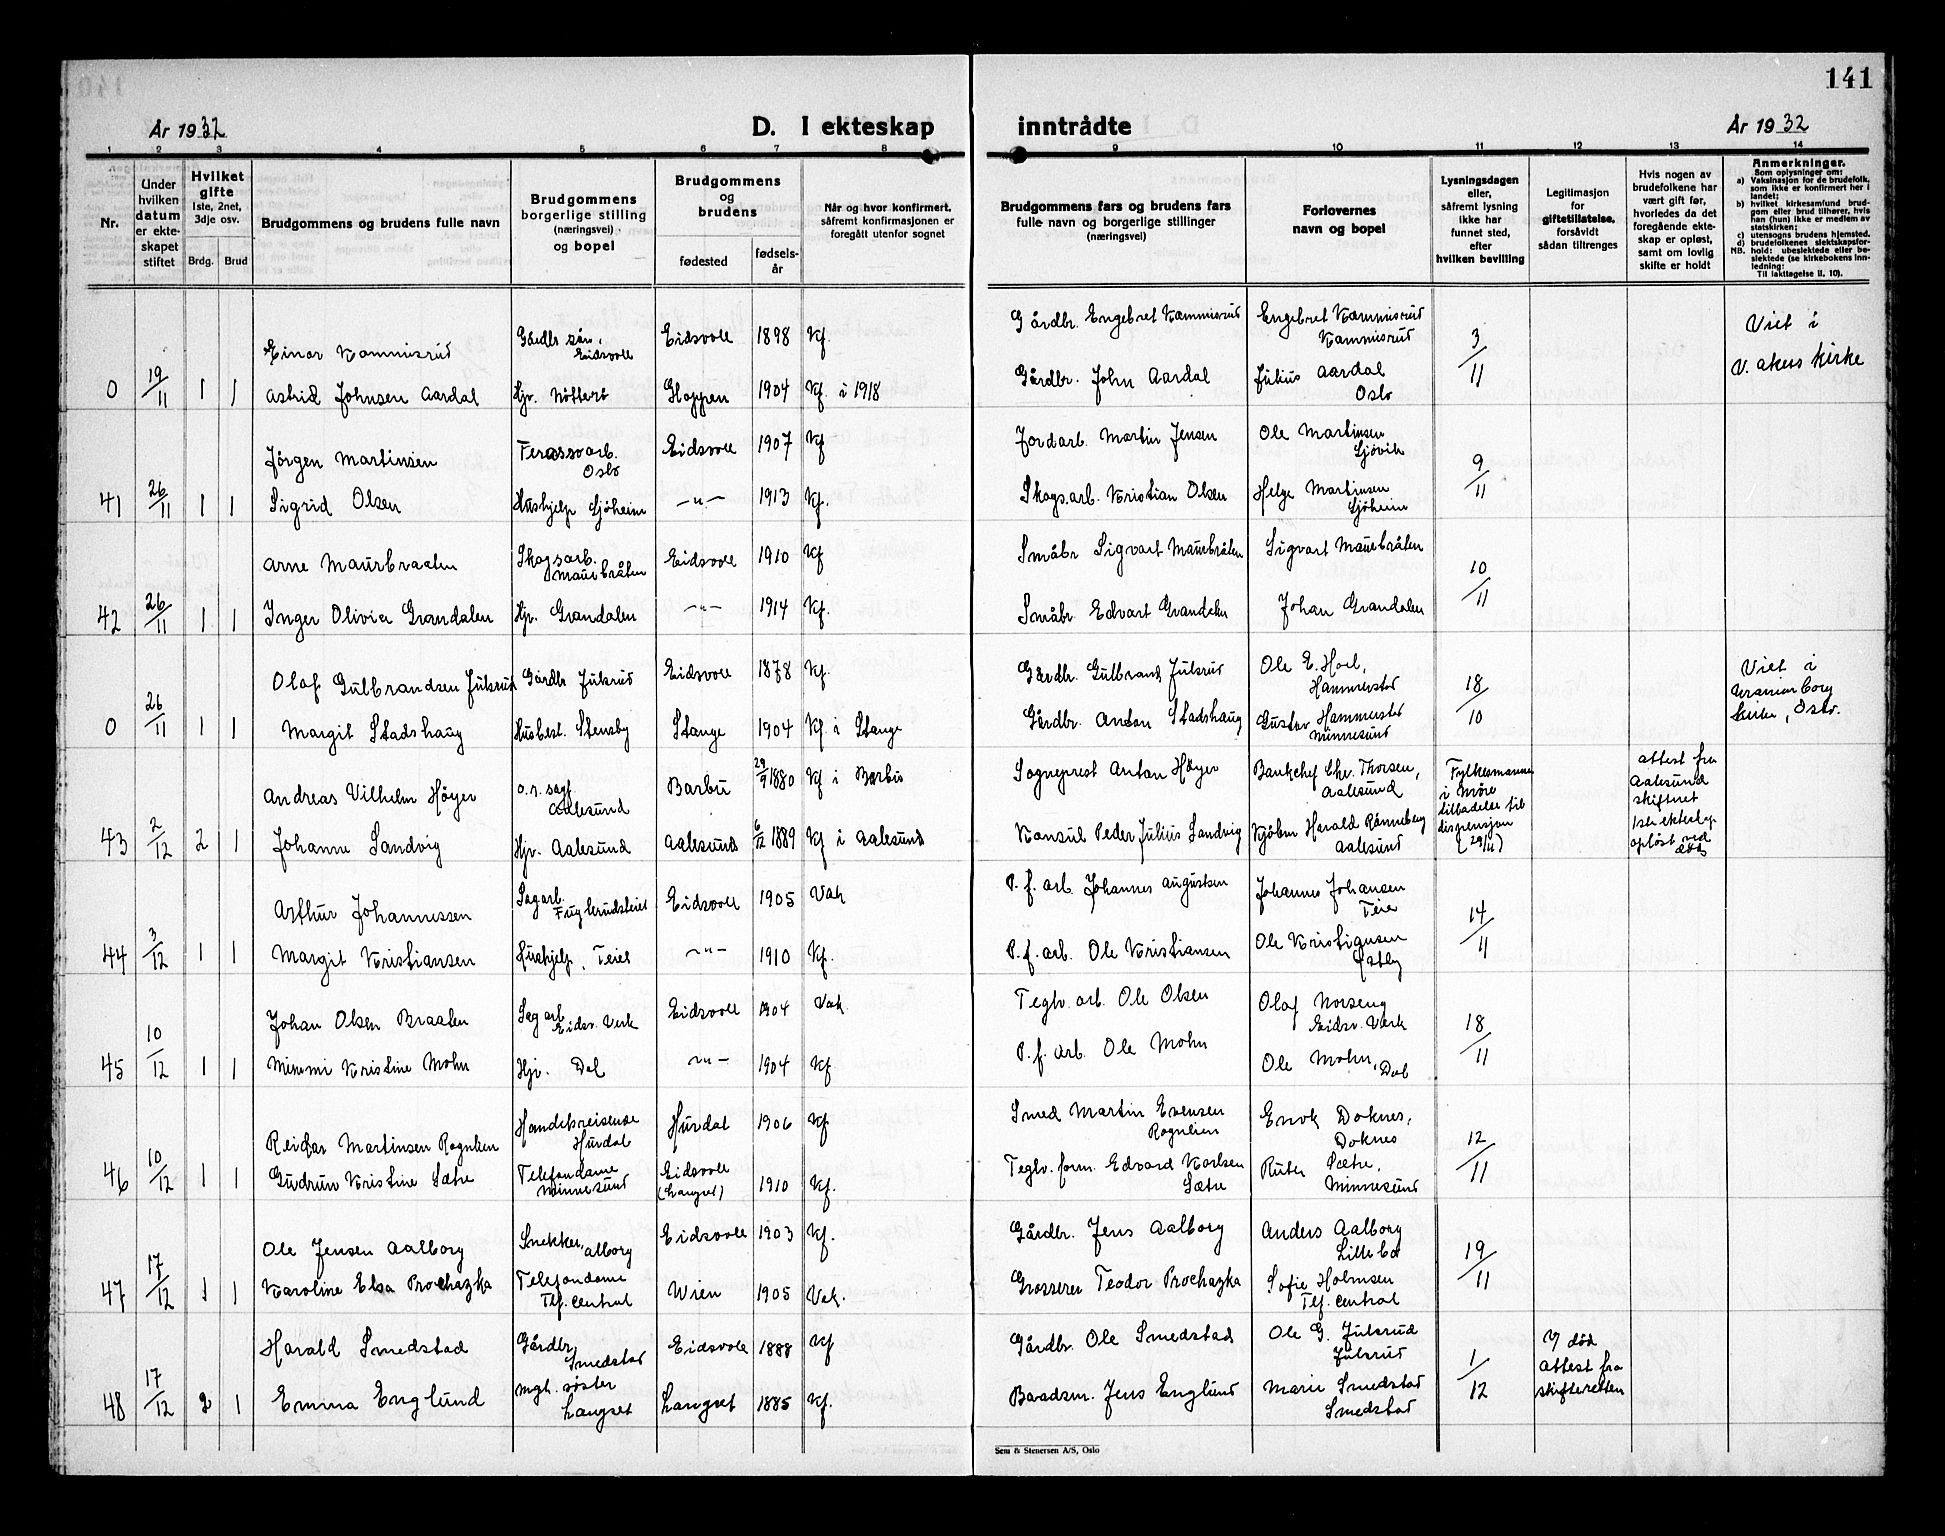 141
År 1932
D. I ekteskap inntrådte
År 1932
1 2 3 4 5 6 7 8 9 10 11 12 13 14
Nr.
Under hvilken datum er ekteskapet stiftet
Hvilket gifte
1ste, 2net, 3dje osv.
Brdg. Brud
Brudgommens og brudens fulle navn
Brudgommens borgerlige stilling (næringsvei) og bopel
Brudgommens og brudens
fødested
fødselsår
Når og hvor konfirmert, såfremt konfirmasjonen er foregått utenfor sognet
Brudgommens fars og brudens fars fulle navn og borgerlige stillinger (næringsvei)
Forlovernes navn og bopel
Lysningsdagen eller, såfremt lysning ikke har funnet sted, efter hvilken bevilling
Legitimasjon for giftetillatelse, forsåvidt sådan tiltrenges
Hvis nogen av brudefolkene har vært gift før, hvorledes da det foregående ekteskap er opløst, samt om lovlig skifte er holdt
Anmerkninger.
Som oplysninger om:
a) Vaksinasjon for de brudefolk, som ikke er konfirmert her i landet;
b) hvilket kirkesamfund brudgom eller brud tilhører, hvis han (hun) ikke er medlem av statskirken;
c) utensogns brudens hjemsted.
d) brudefolkenes slektskapsforhold: ubeslektede eller beslektede (se kirkebokens innledning:
NB. Til iakttagelse II. 10).
Einar Kammisrud Gårdbr. søn, Eidsvoll Eidsvoll 1898 Kf. Gårdbr. Engebret Kammisrud Engebret Kammisrud Kammisrud 3/11 Viet i V. Akers kirke
0 19/11 1 1 Astrid Johnsen Aardal Hjv. Gloppen 1904 Kf. i 1918 Gårdbr. John Aardal Julius Aardal Oslo
Jörgen Martinsen Oslo Eidsvoll 1907 Kf Jordarb. Martin Jensen Ole Martinsen 9/11
41 26/11 1 1 Sigrid Olsen Hushjelp Sjöheim -"- 1913 Kf. Skogsarb. Kristian Olsen Helge Martinsen Sjöheim
Arne Maurbraaten Skogsarb. Maurbråten Eidsvoll 1910 Kf Småbr Sigvart Maurbråten Sigvart Maurbråten 10/11
42 26/11 1 1 Inger Olivia Grandalen Hjv. Grandalen -"- 1914 Kf. Småbr Edvart Grandalen Johan Grandalen
Olaf Gulbrandsen Julsrud Gårdbr Julsrud Eidsvoll 1878 Kf. Gårdbr. Gulbrand Julsrud Ole E. Hammerstad 18/10 Viet i Uranienborg kirke, Oslo.
0 26/11 1 1 Margit Stadshaug Husbest. Stensby Stange 1904 Kf. i Stange Gårdbr. Anton Stadshaug Gustav Hammerstad Minnesund
Andreas Vilhelm Höyer o.r. sagf. Aalesund Barbu 29/9 1880 Kf i Barbu Sogneprest Anton Höyer Bankchef Chr. Thorsen, Aalesund Fylkesmannen i Möre tilladelse til dispensjon (29/11) attest fra Aalesund skifteret 1ste ekteskap opløst ved død
43 2/12 2 1 Johanne Sandvig Hjv. Aalesund Aalesund 6/12 1889 Kf i Aalesund Konsul Peder Julius Sandvig Kjöbm Harald Rönneberg Aalesund
Arthur Johannessen Sagarb. Eidsvoll 1905 Vak P. f. arb. Johannes Augustsen Johannes Johansen Teie 14/11
44 3/12 1 1 Margit Kristiansen Hushjelp, Teiet -"- 1910 Kf. P. f. arb. Ole Kristiansen Ole Kristiansen
Johan Olsen Braaten Sagarb. Eidsv. Verk Eidsvoll 1904 Vak Teglv. arb. Ole Olsen Olaf Norseng Eidsv. Verk 18/11
45 10/12 1 1 Mimmi Kristine Mohn Hjv. Dal -"- 1904 Kf P. f. arb. Ole Mohn Ole Mohn, Dal
Reidar Martinsen Rognlien Handelsreisende Hurdal Hurdal 1906 Kf Smed Martin Evensen Rognlien Enok Doknes, Doknes 12/11
46 10/12 1 1 Gudrun Kristine Sætre Telefondame Minnesund Eidsvoll (Langset) 1910 Kf. Teglv. form. Edvard Karlsen Sætre Ruth Sætre, Minnesund
Ole Jensen Aalborg Snekker, Alborg Eidsvoll 1903 Kf. Gårdbr. Jens Aalborg Anders Aalborg 19/11
47 17/12 1 1 Karoline Elsa Prochazka Telefondame Tlf. central Wien 1905 Vak. Grosserer Teodor Prochazka Sofie Holmsen Tlf. central
Harald Smedstad Gårdbr. Smedstad Eidsvoll 1888 Kf Gårdbr. Ole Smedstad Ole G. Julsrud Julsrud 1/12 V/ död Attest fra skifteretten
48 17/12 2 1 Emma Englund Langset Langset 1885 Kf. Baadsm. Jens Englund Marie Smedstad Smedstad
Sem & Stenersen A/S, Oslo